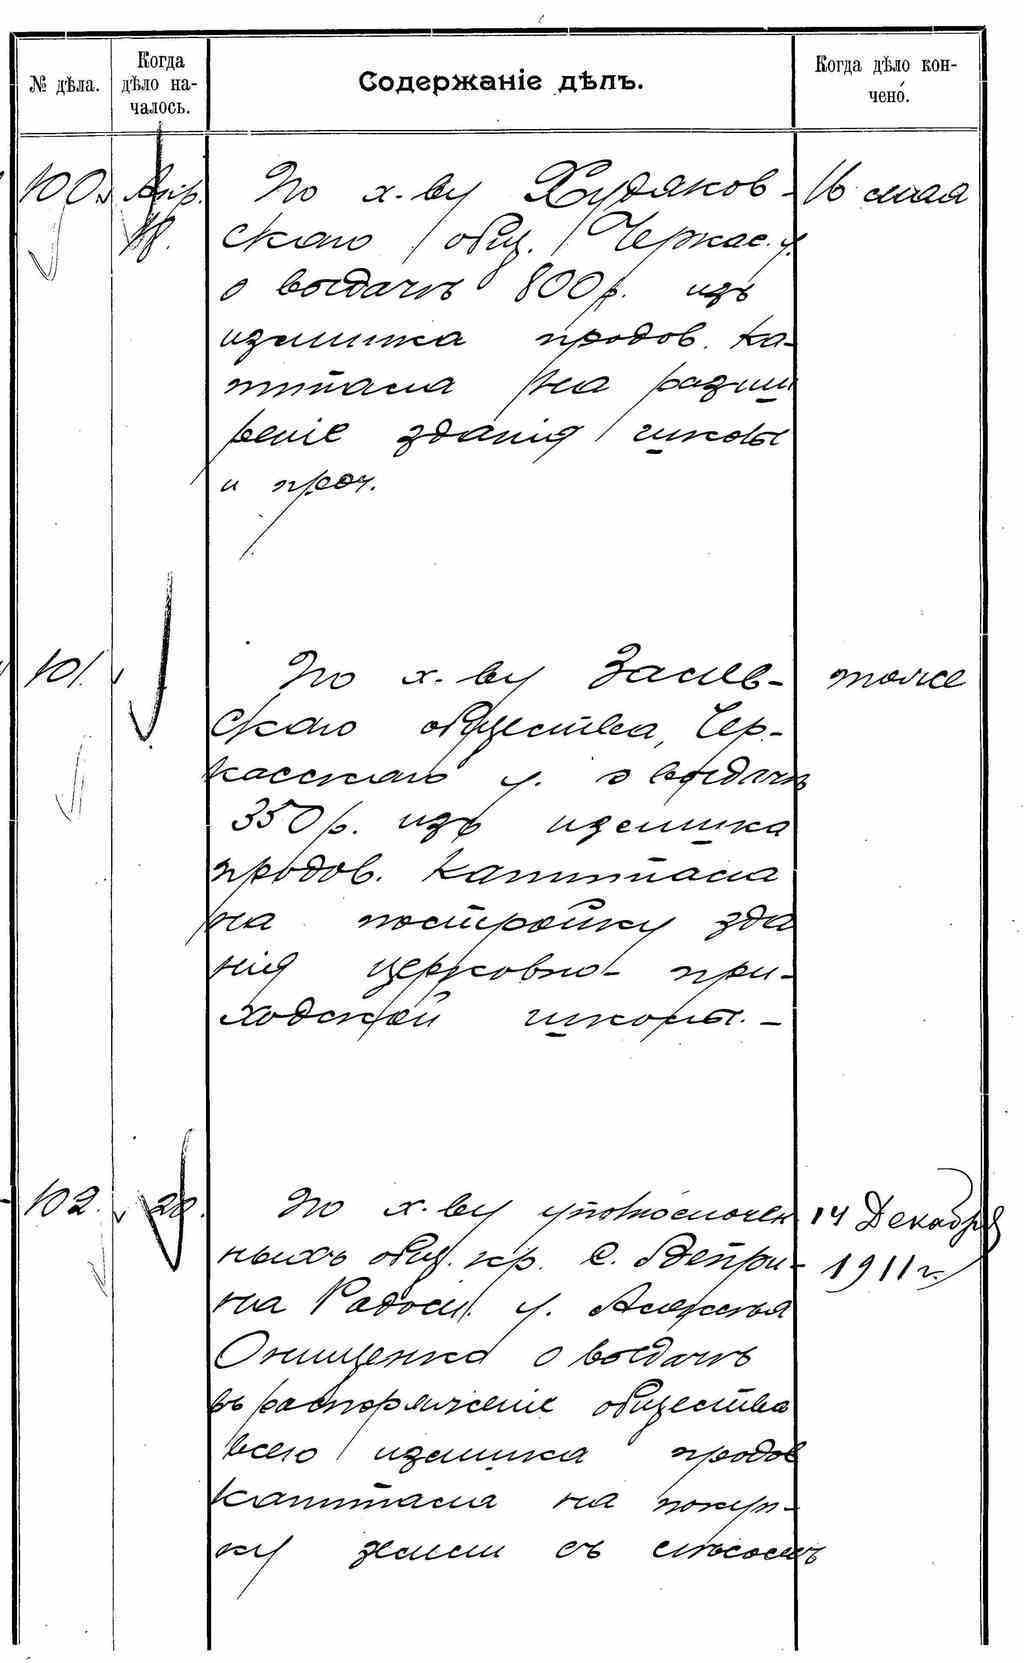 № дѣла.
Когда
дѣло на-
чалось.
Содержаніе дѣлъ.
Когда дѣло кон-
чено.
100. Апр. По х-ву Худяков- 16 мая
18. скаго общ. Черкас. у.
о выдачѣ 800 р. изъ
излишка продов. ка-
питала на разши
реніе зданія школы
и проч.
101. По х-ву Заслев- тоже
скаго общества, Чер-
касскаго у. о выдачѣ
350 р. изъ излишка
продов. капитала
на постройку зда
нія церковно-при-
ходской школы. -
102. 20. По х-ву уполномочен 14 Декабря
ныхъ общ. кр. с. Вепри- 1911 г.
на Радом. у.
Онищенко о выдачѣ
въ распоряженіе общества
всего излишка продов
капитала на покуп-
ку земли съ лѣсомъ